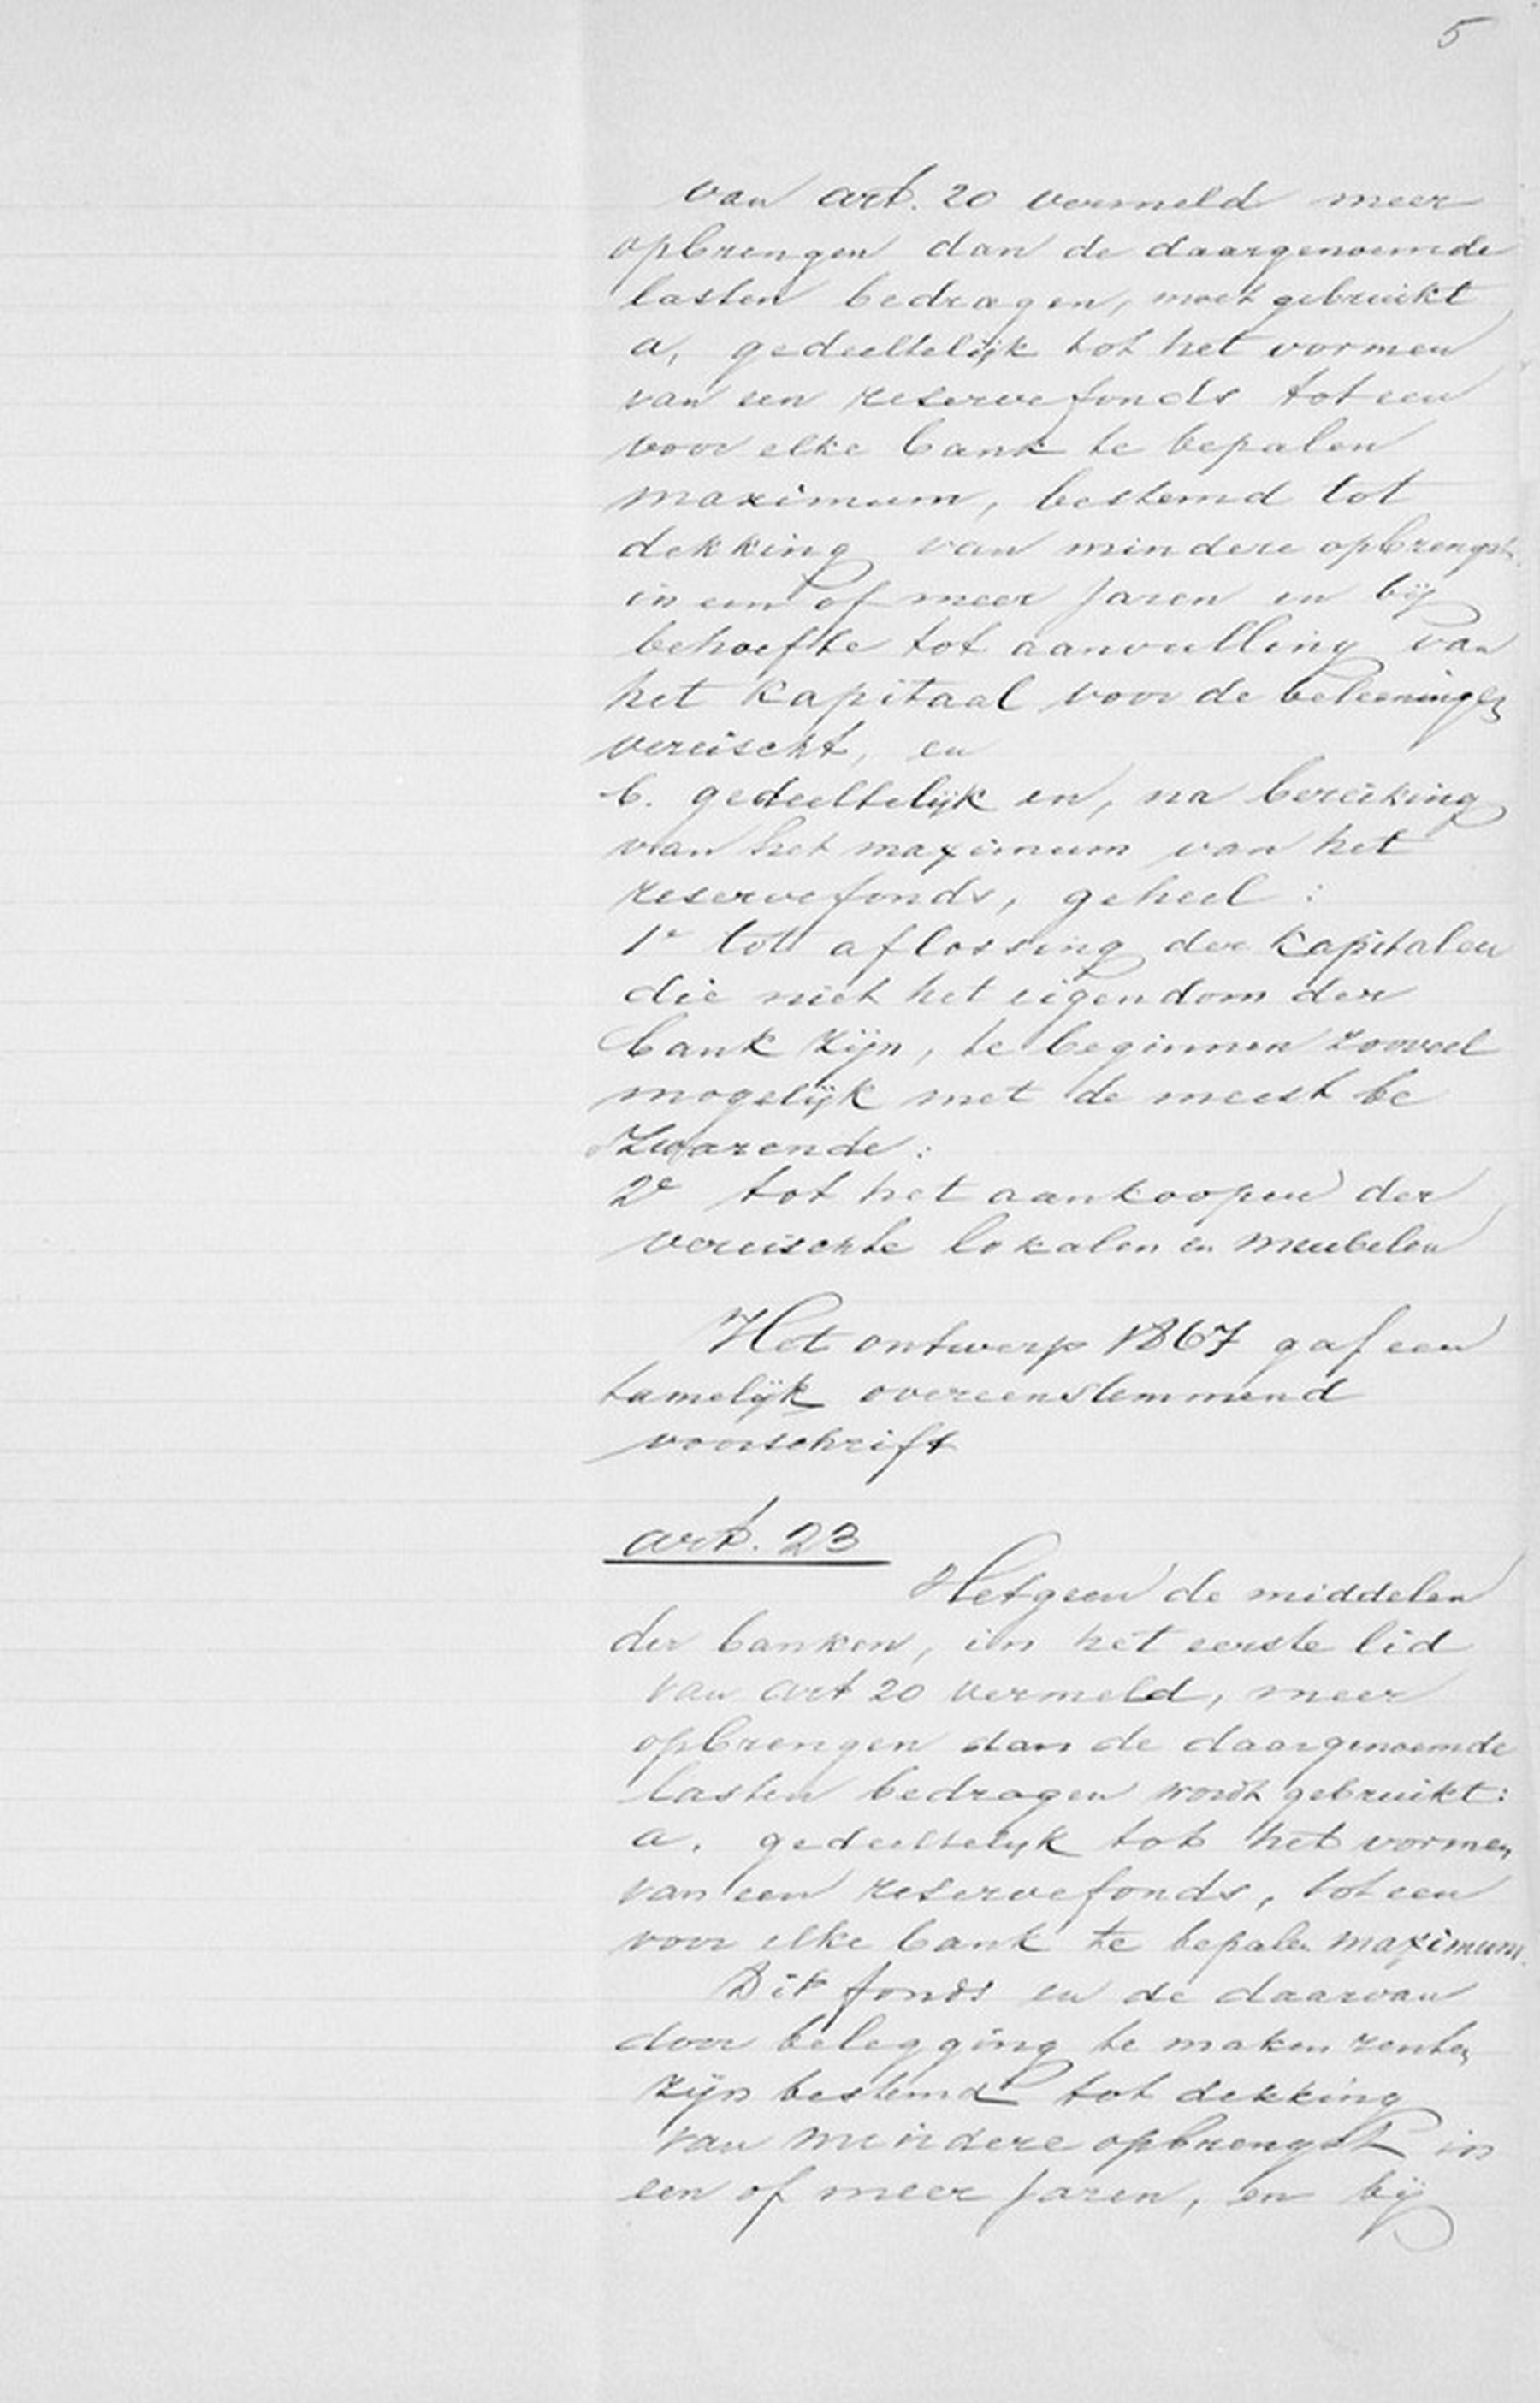 5
van art. 20 vermeld meer
opbrengen dan de daargenoemde
lasten bedragen, moet gebruikt
a, gedeeltelijk tot het vormen
van een reservefonds tot een
voor elke bank te bepalen
maximum, bestemd tot
dekking van mindere opbrengst
in een of meer jaren en bij
behoefte tot aanvulling van
het kapitaal voor de beleeningen
vereischt, en
b. gedeeltelijk en, na bereiking
van het maximum van het
reservefonds, geheel:
1e tot aflossing der kapitalen
die niet het eigendom der
bank zijn, te beginnen zooveel
mogelijk met de meest be
zwarende:
2e tot het aankoopen der
vereischte lokalen en meubelen
Het ontwerp 1867 gaf een
tamelijk overeenstemmend
voorschrift
art. 23
Hetgeen de middelen
der banken, in het eerste lid
van art 20 vermeld, meer
opbrengen dan de daargenoemde
lasten bedragen wordt gebruikt:
a. gedeeltelijk tot het vormen
van een reservefonds, tot een
voor elke bank te bepalen maximum.
Dit fonds en de daarvan
door belegging te maken renten
zijn bestemd tot dekking
van mindere opbrengst in
een of meer jaren, en bij